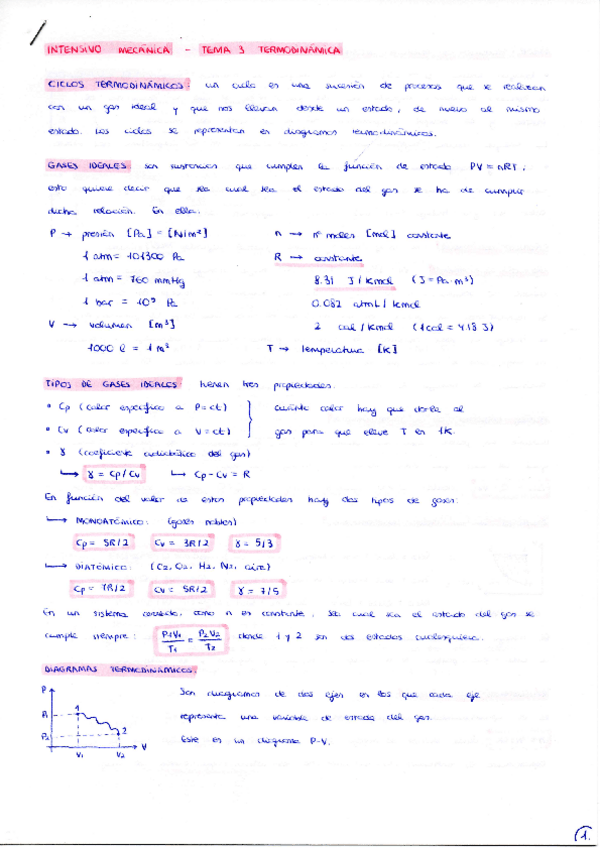 INTENSIVO MECÁNICA - TEMA 3 TERMODINÁMICA
CICLOS TERMODINÁMICOS: un ciclo es una sucesión de procesos que se realizan
con un gas ideal y que nos llevan desde un estado, de nuevo al mismo
estado. Los ciclos se representan en diagramas termodinámicos.
GASES IDEALES son sustancias que cumplen la función de estado PV = nRT,
esto quiere decir que sea cual sea el estado del gas se ha de cumplir
dicha relación. En ella:
P → presión [Pa] = [N/m²]
1 atm = 101300 Pa
1 atm = 760 mmHg
1 bar = 10⁵ Pa
V → volumen [m³]
1000 l = 1 m³
n → nº moles [mol] constante
R → constante
8.31 J/Kmol (J = Pa·m³)
0.082 atmL/Kmol
2 cal/Kmol (1cal = 4.18 J)
T → temperatura [K]
TIPOS DE GASES IDEALES: tienen tres propiedades.
• Cp (calor específico a P=ct)
• Cv (calor específico a V=ct)
cuánto calor hay que darle al
gas para que eleve T en 1K.
• γ (coeficiente adiabático del gas)
↳ γ = Cp/Cv ↳ Cp - Cv = R
En función del valor de estas propiedades hay dos tipos de gases:
↳ MONOATÓMICO: (gases nobles)
Cp = 5R/2 Cv = 3R/2 γ = 5/3
↳ DIATÓMICO: (Cl₂, O₂, H₂, N₂, aire)
Cp = 7R/2 Cv = 5R/2 γ = 7/5
En un sistema cerrado, como n es constante, sea cual sea el estado del gas se
cumple siempre: P₁V₁/T₁ = P₂V₂/T₂ donde 1 y 2 son dos estados cualesquiera.
DIAGRAMAS TERMODINÁMICOS:
Son diagramas de dos ejes en los que cada eje
representa una variable de estado del gas.
Este es un diagrama P-V.
P
P₁
P₂
1
2
V
V₁ V₂
1.